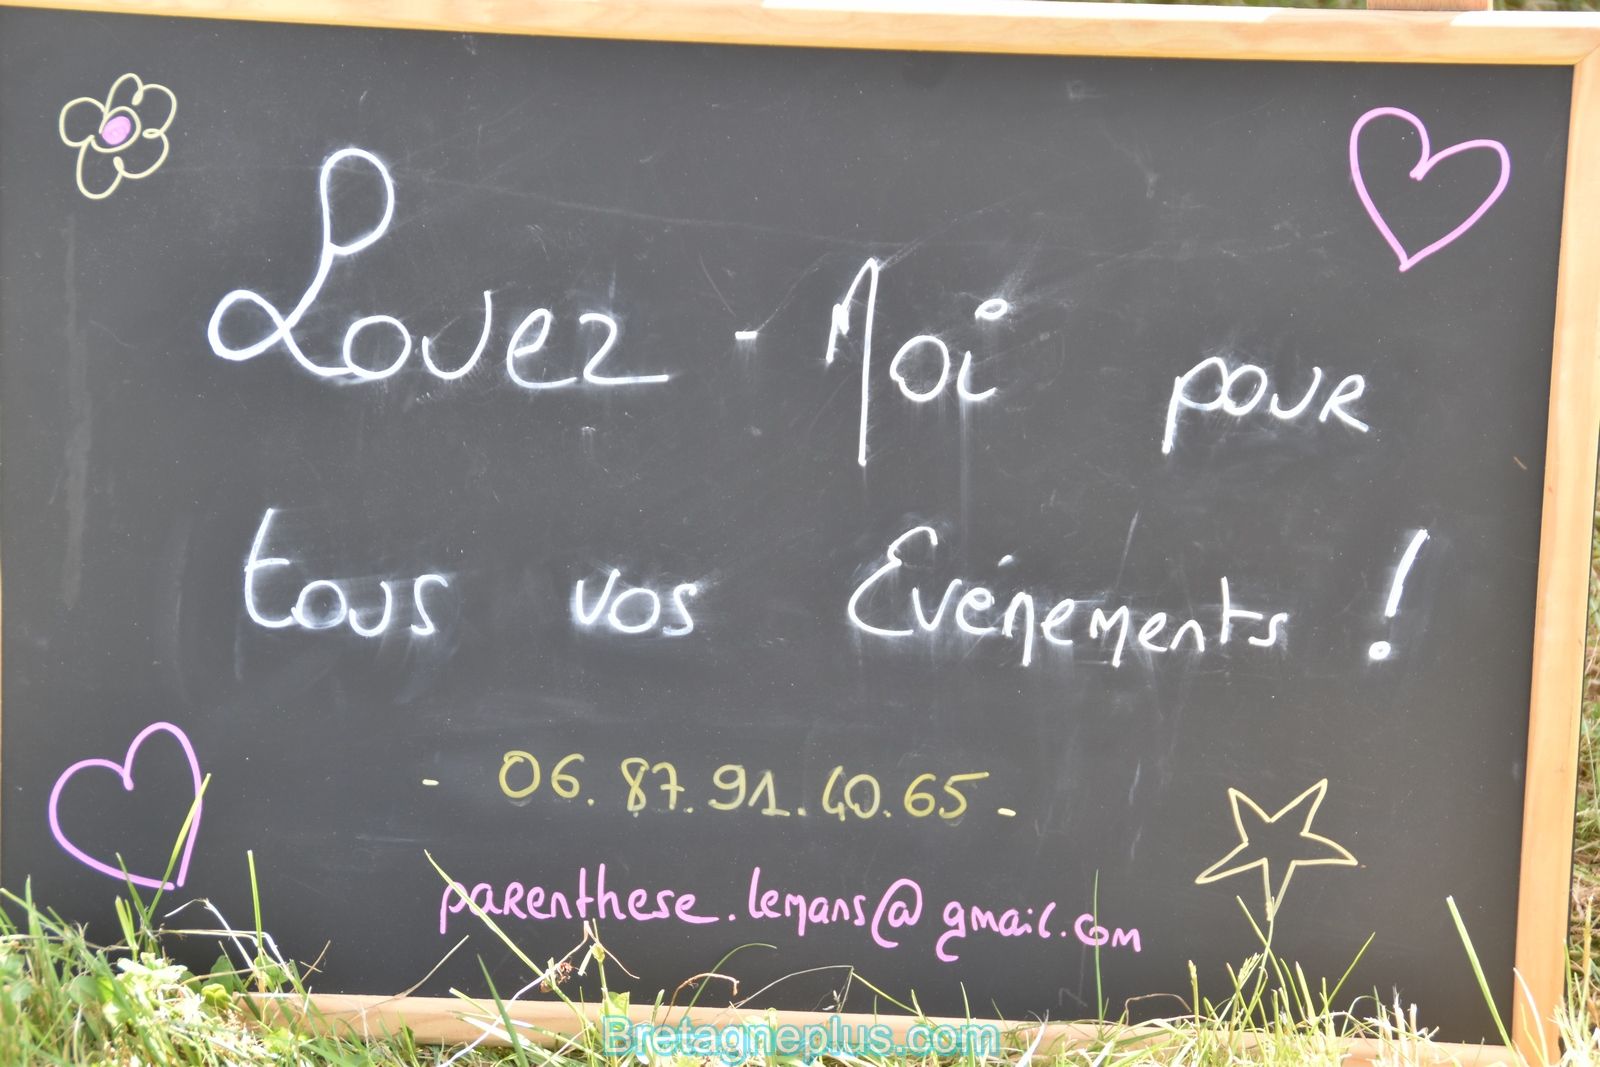 Louez - Moi pour
tous vos Evénements !
- 06.87.91.40.65 -
parenthese.lemans@gmail.com
Bretagneplus.com